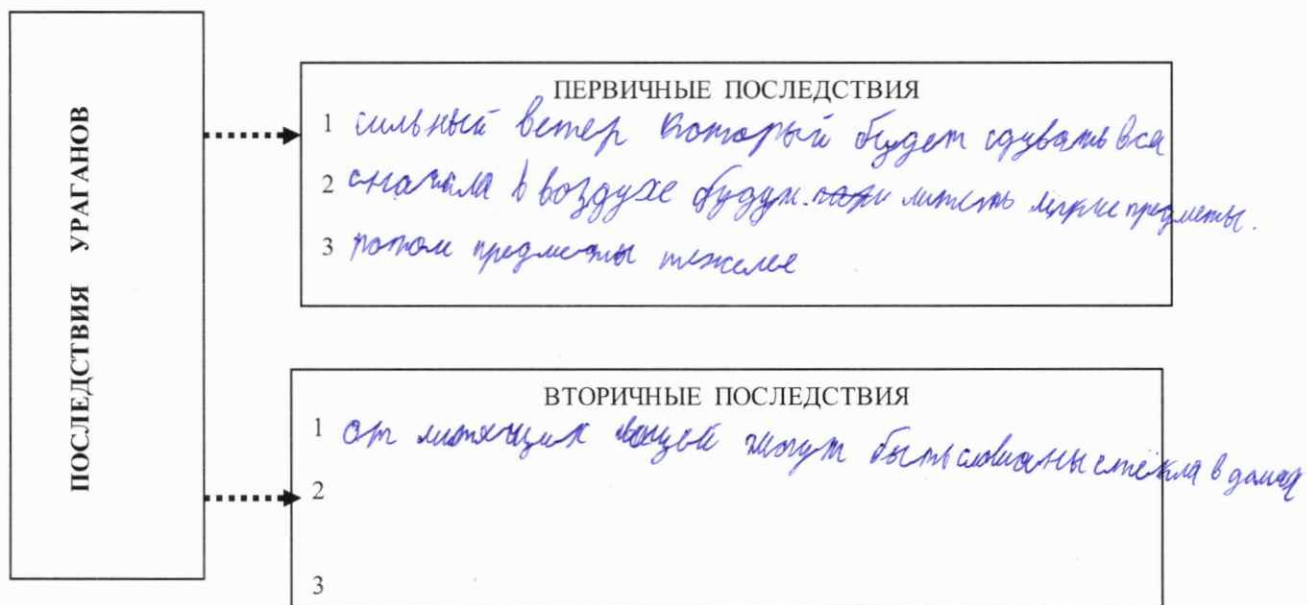 ПОСЛЕДСТВИЯ УРАГАНОВ
ПЕРВИЧНЫЕ ПОСЛЕДСТВИЯ
1 сильный ветер который будет сдувать вса
2 сначала в воздухе будут литеть легкие предметы.
3 потом предметы тяжелее
ВТОРИЧНЫЕ ПОСЛЕДСТВИЯ
1 от литящих вещей могут быть сломаны стёкла в домах
2
3